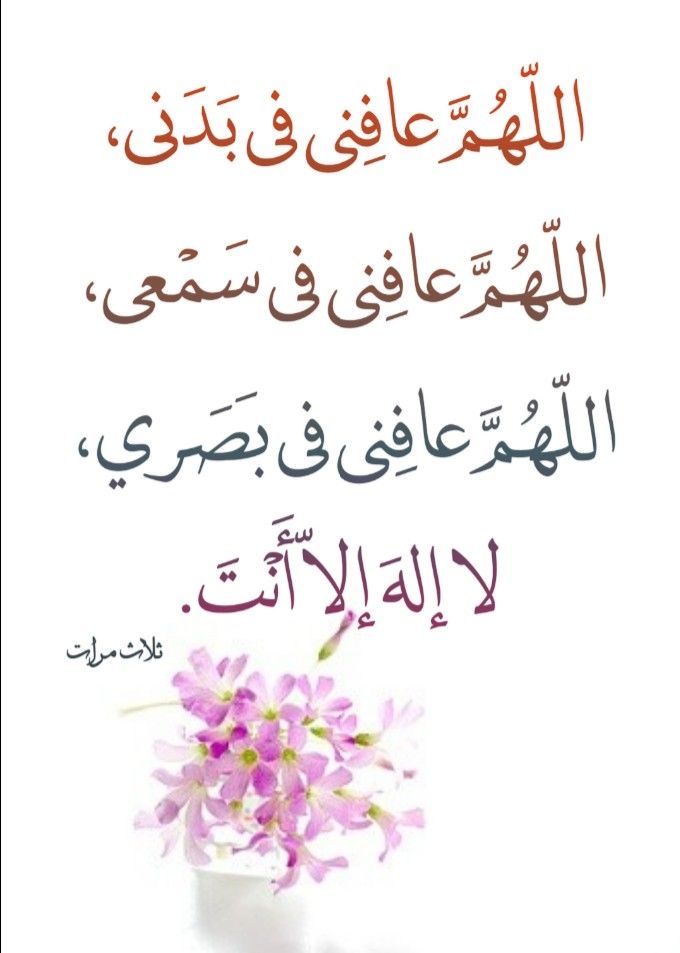 اللّهُمَّ عافِنِى فى بَدَنى،
اللّهُمَّ عافِنِى فى سَمْعى،
اللّهُمَّ عافِنِى فى بَصَري،
لا إلهَ إلاّ أَنْتَ.
ثلاث مرات